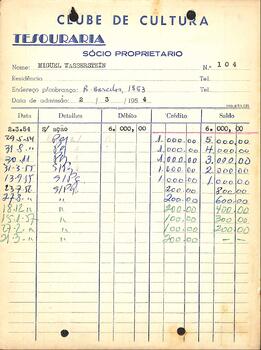 CLUBE DE CULTURA
TESOURARIA
SÓCIO PROPRIETARIO
Nome: MIGUEL WASSERSTEIN N.º 104
Residência Tel.
Endereço p/cobrança: R. 1853 Tel.
Data de admissão: 2 / 3 / 1954
Data Detalhes Débito Crédito Saldo
2.3.54 s/ação 6.000,00 6.000,00
29.5.54 1.000.00 5.000.00
31.8 " 1.000.00 4.000.00
30.11 1.000.00 3.000.00
31-3-55 1.000.00 2.000.00
13-9-55 1.000.00 1.000.00
23.7.56 200.00 800.00
27.8 " " 200.00 600.00
18.12 " " 200.00 400.00
15.1.57 " 100.00 300.00
27.2 " " 100.00 200.00
21.3 " " 200.00 - -